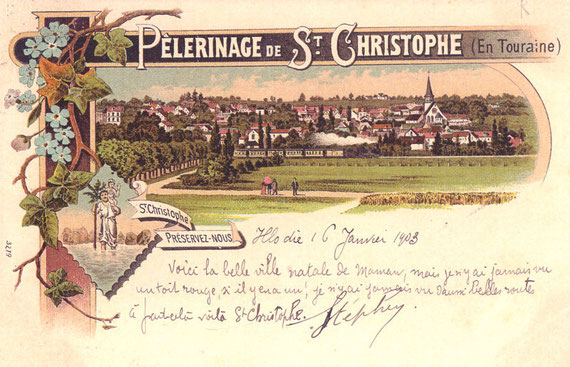 PÈLERINAGE DE ST CHRISTOPHE (En Touraine)
St Christophe
PRÉSERVEZ-NOUS
3219
16 Janvier 1903
Voici la belle ville natale de Maman, mais je n'y ai jamais vu
un toit rouge, si il y en a un! je n'y ai jamais vu d'aussi belles routes
à part celà voilà St Christophe. Stéphen